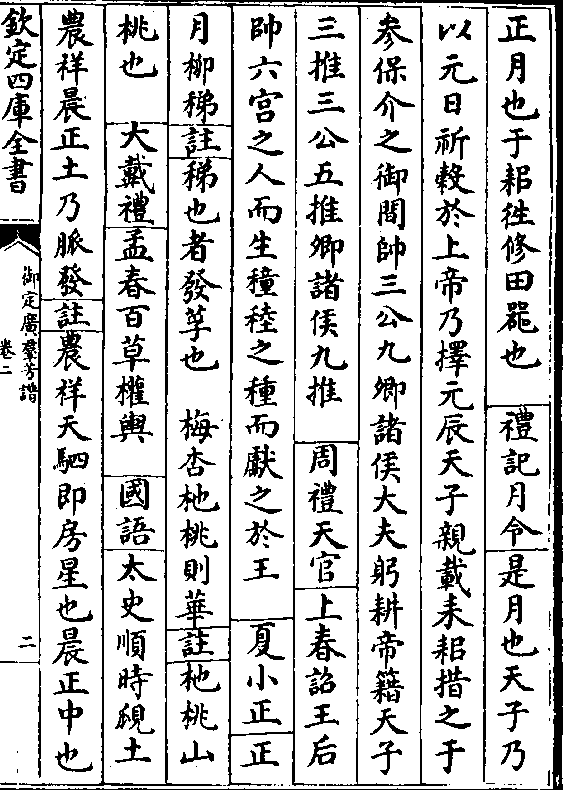 正月也于耜徃修田噐也　禮記月令是月也天子乃
以元日祈穀於上帝乃擇元辰天子親載耒耜措之于
參保介之御間帥三公九卿諸侯大夫躬耕帝籍天子
三推三公五推卿諸侯九推　周禮天官上春詔王后
帥六宫之人而生穜稑之種而獻之於王　夏小正正
月柳稊註稊也者發孚也　梅杏杝桃則華註杝桃山
桃也　大戴禮孟春百草權輿　國語太史順時覛土
農祥晨正土乃脈發註農祥天駟即房星也晨正中也
欽定四庫全書
御定廣羣芳譜
卷二
二